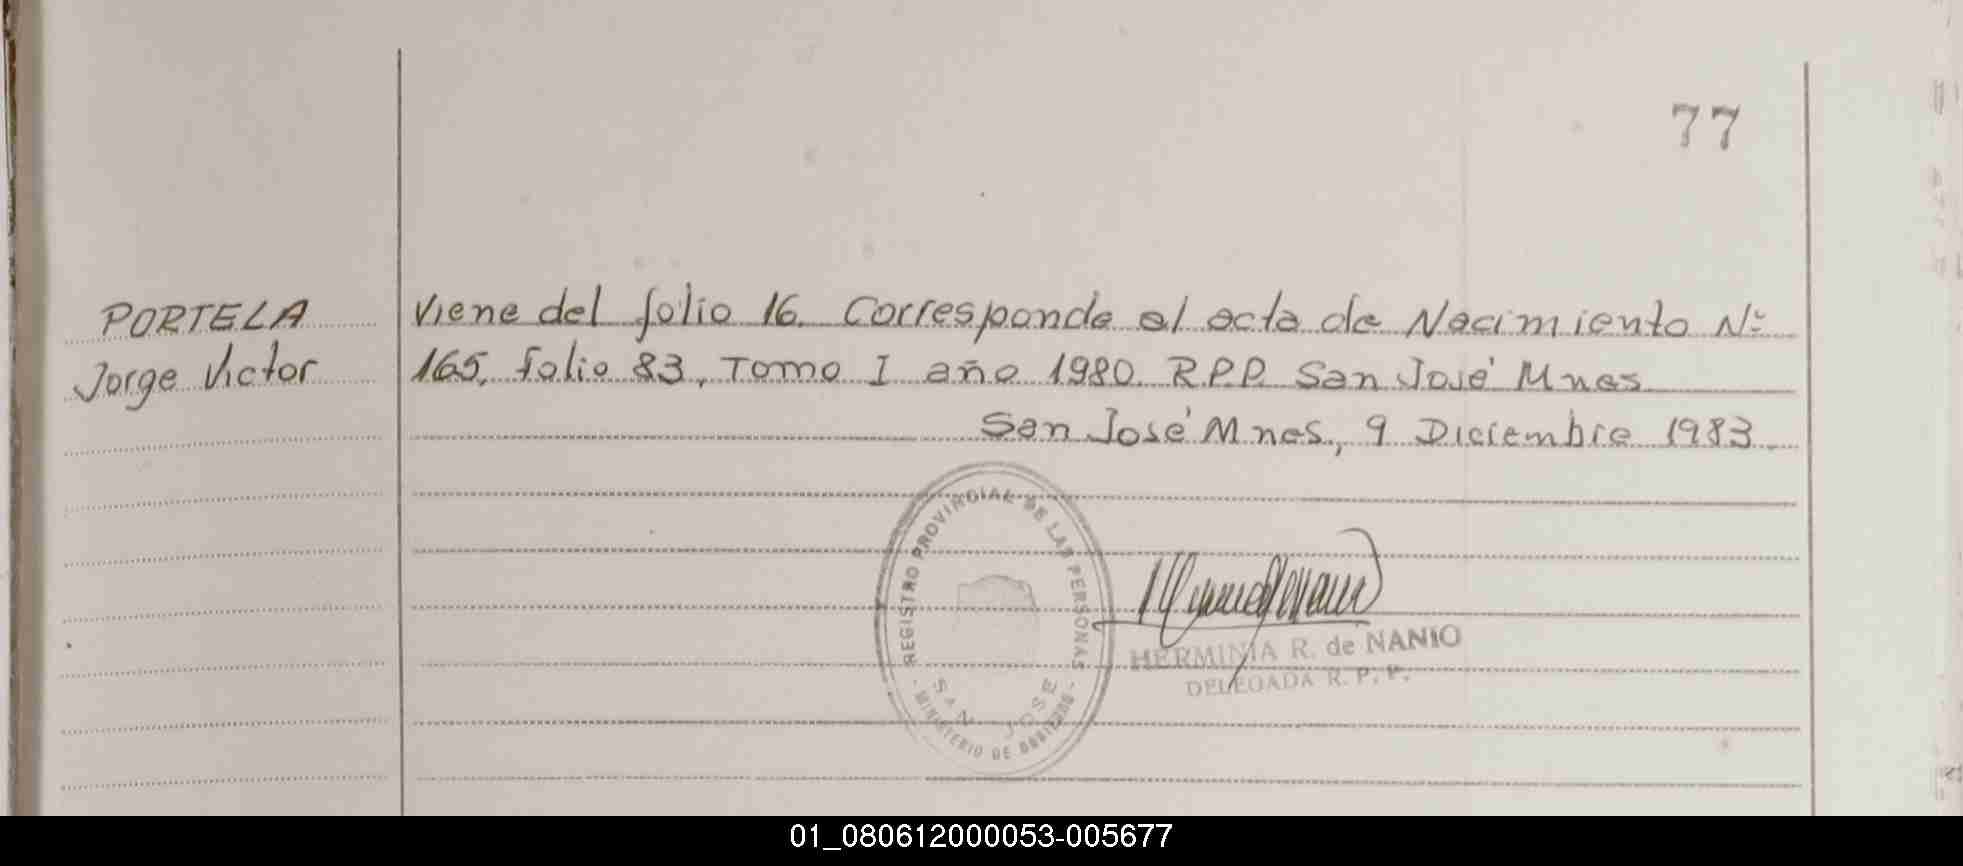 77
PORTELA
Jorge Victor
Viene del folio 16. Corresponde al acta de Nacimiento Nº
165, folio 83, Tomo I año 1980 R.P.P. San José Mnes
San José Mnes, 9 Diciembre 1983
REGISTRO PROVINCIAL DE LAS PERSONAS
SAN JOSE
- MINISTERIO DE GOBIERNO -
HERMINIA R. de NANIO
DELEGADA R. P. P.
01_080612000053-005677